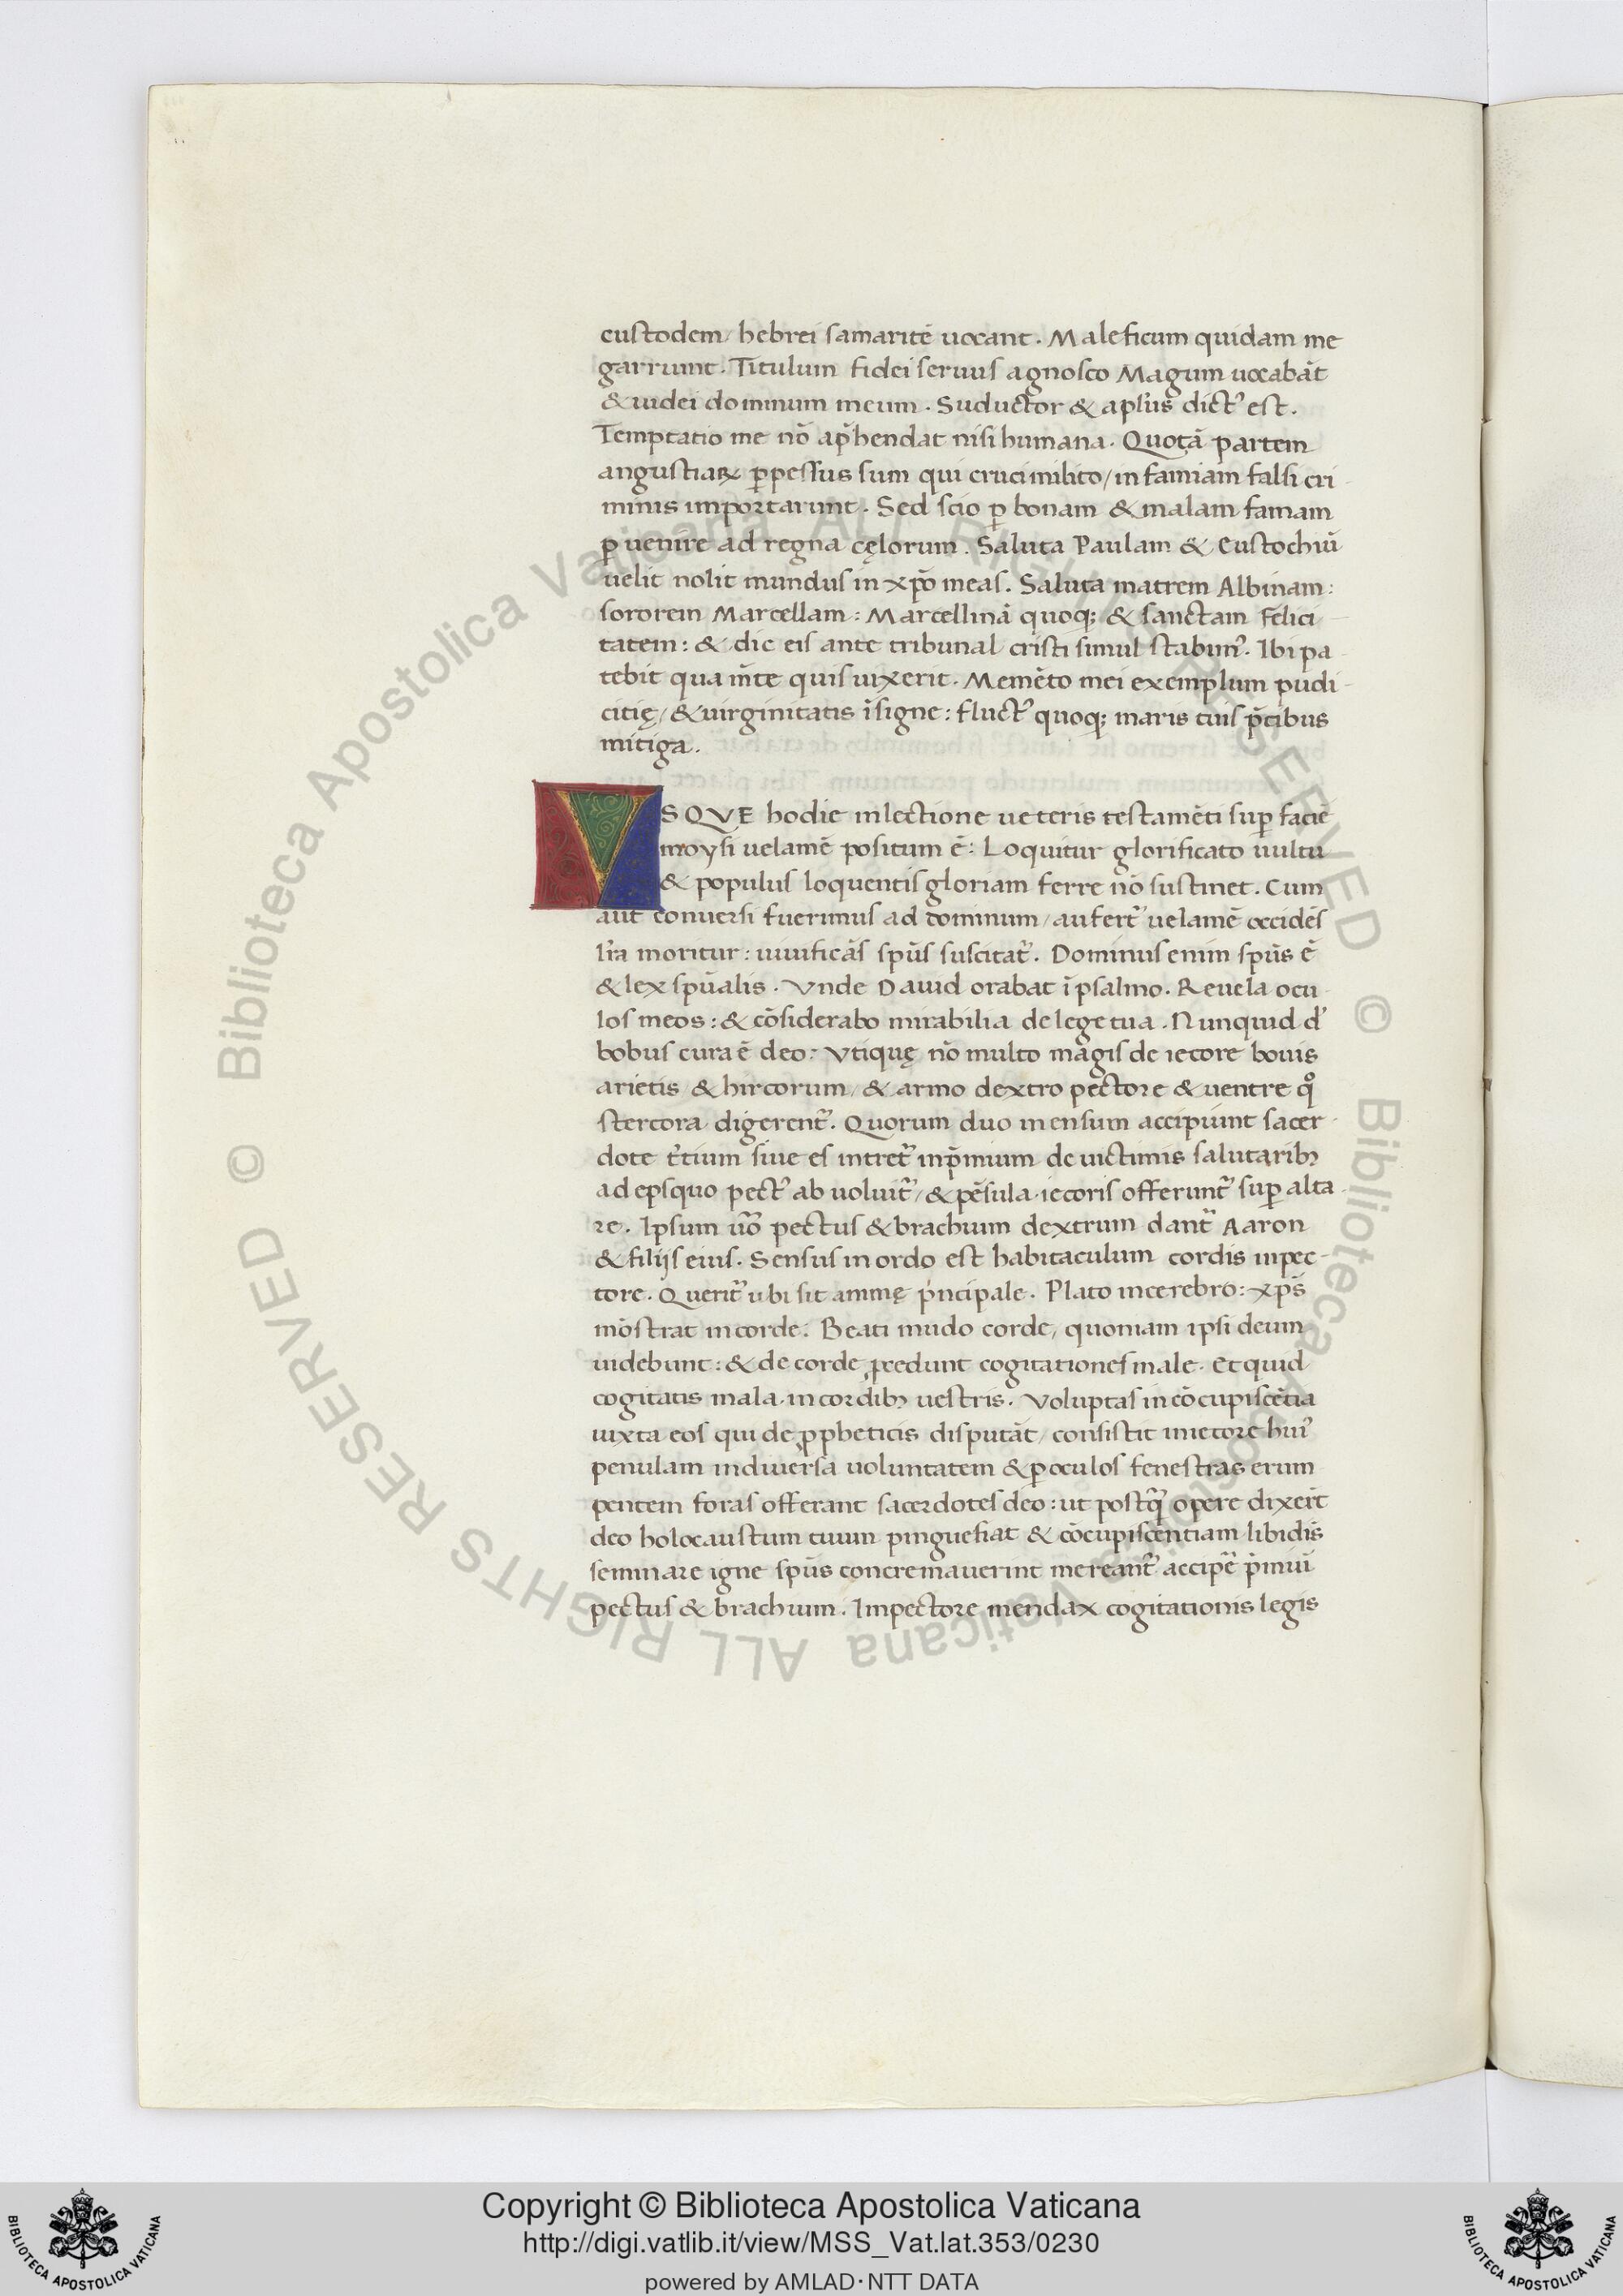 custodem / hebrei samaritē uocant . Maleficum quidam me
garriunt . Titulum fidei seruus agnosco Magum uocabāt
& iudei dominum meum . Suductor & apl̄us dictꝰ est .
Temptatio me nō ap̄hendat nisi humana . Quotā partem
angustiaꝝ ꝑpessus sum qui cruci milito / in famiam falsi cri-
minis importarunt . Sed scio ꝑ bonam & malam famam
ꝑ uenire ad regna cęlorum . Saluta Paulam & Eustochiū
uelit nolit mundus in xp̄o meas . Saluta matrem Albinam :
sororem Marcellam : Marcellinā quoqꝫ & sanctam Felici-
tatem : & dic eis ante tribunal cristi simul stabimꝰ . Ibi pa-
tebit qua m̄te quis uixerit . Memēto mei exemplum pudi-
citię / & uirginitatis īsigne : fluctꝰ quoqꝫ maris tuis p̄cibus
mitiga .
VSQVE hodie in lectione ueteris testamēti suꝑ faciē
moysi uelamē positum ē : Loquitur glorificato uultu
& populus loquentis gloriam ferre nō sustinet . Cum
aut̄ conuersi fuerimus ad dominum / aufert᷑ uelamē occidēs
lr̄a moritur : uiuificās sp̄us suscitat᷑ . Dominus enim sp̄us ē
& lex sp̄ualis . Vnde Dauid orabat ī psalmo . Reuela ocu-
los meos : & cōsiderabo mirabilia de lege tua . Nunquid d'
bobus cura ē deo : Vtiquę nō multo magis de iecore bouis
arietis & hircorum / & armo dextro pectore & uentre qͦ
stercora digerent᷑ . Quorum duo in ensum accipiunt sacer-
dote t̄tium siue es intret᷑ in p̄mium de uictimis salutaribꝫ
ad epsquo pectꝰ ab uoluit᷑ / & pēsula iecoris offerunt᷑ suꝑ alta-
re . Ipsum uō pectus & brachium dextrum dant᷑ Aaron
& filijs eius . Sensus in ordo est habitaculum cordis in pec-
tore . Querit᷑ ubi sit animę p̍ncipale . Plato in cerebro : xp̄s
mōstrat in corde . Beati mūdo corde , quoniam ipsi deum
uidebunt : & de corde ꝓcedunt cogitationes male . Et quid
cogitatis mala in cordibꝫ uestris . Voluptas in cōcupiscētia
iuxta eos qui de ꝓpheticis disputāt / consistit in iecore huiꝰ
penulam in diuersa uoluntatem & ꝑ oculos fenestras erum
pentem foras offerant sacerdotes deo : ut postq̄ opere dixerīt
deo holocaustum tuum pingue fiat & cōcupiscentiam libidīs
seminare igne sp̄us concremauerint mereant᷑ accipe᷑ p̄miū
pectus & brachium . Im pectore mendax cogitationis legis
© Biblioteca Apostolica Vaticana ALL RIGHTS RESERVED © Biblioteca Apostolica Vaticana ALL RIGHTS RESERVED
Copyright © Biblioteca Apostolica Vaticana
http://digi.vatlib.it/view/MSS_Vat.lat.353/0230
powered by AMLAD·NTT DATA
BIBLIOTECA APOSTOLICA VATICANA
BIBLIOTECA APOSTOLICA VATICANA